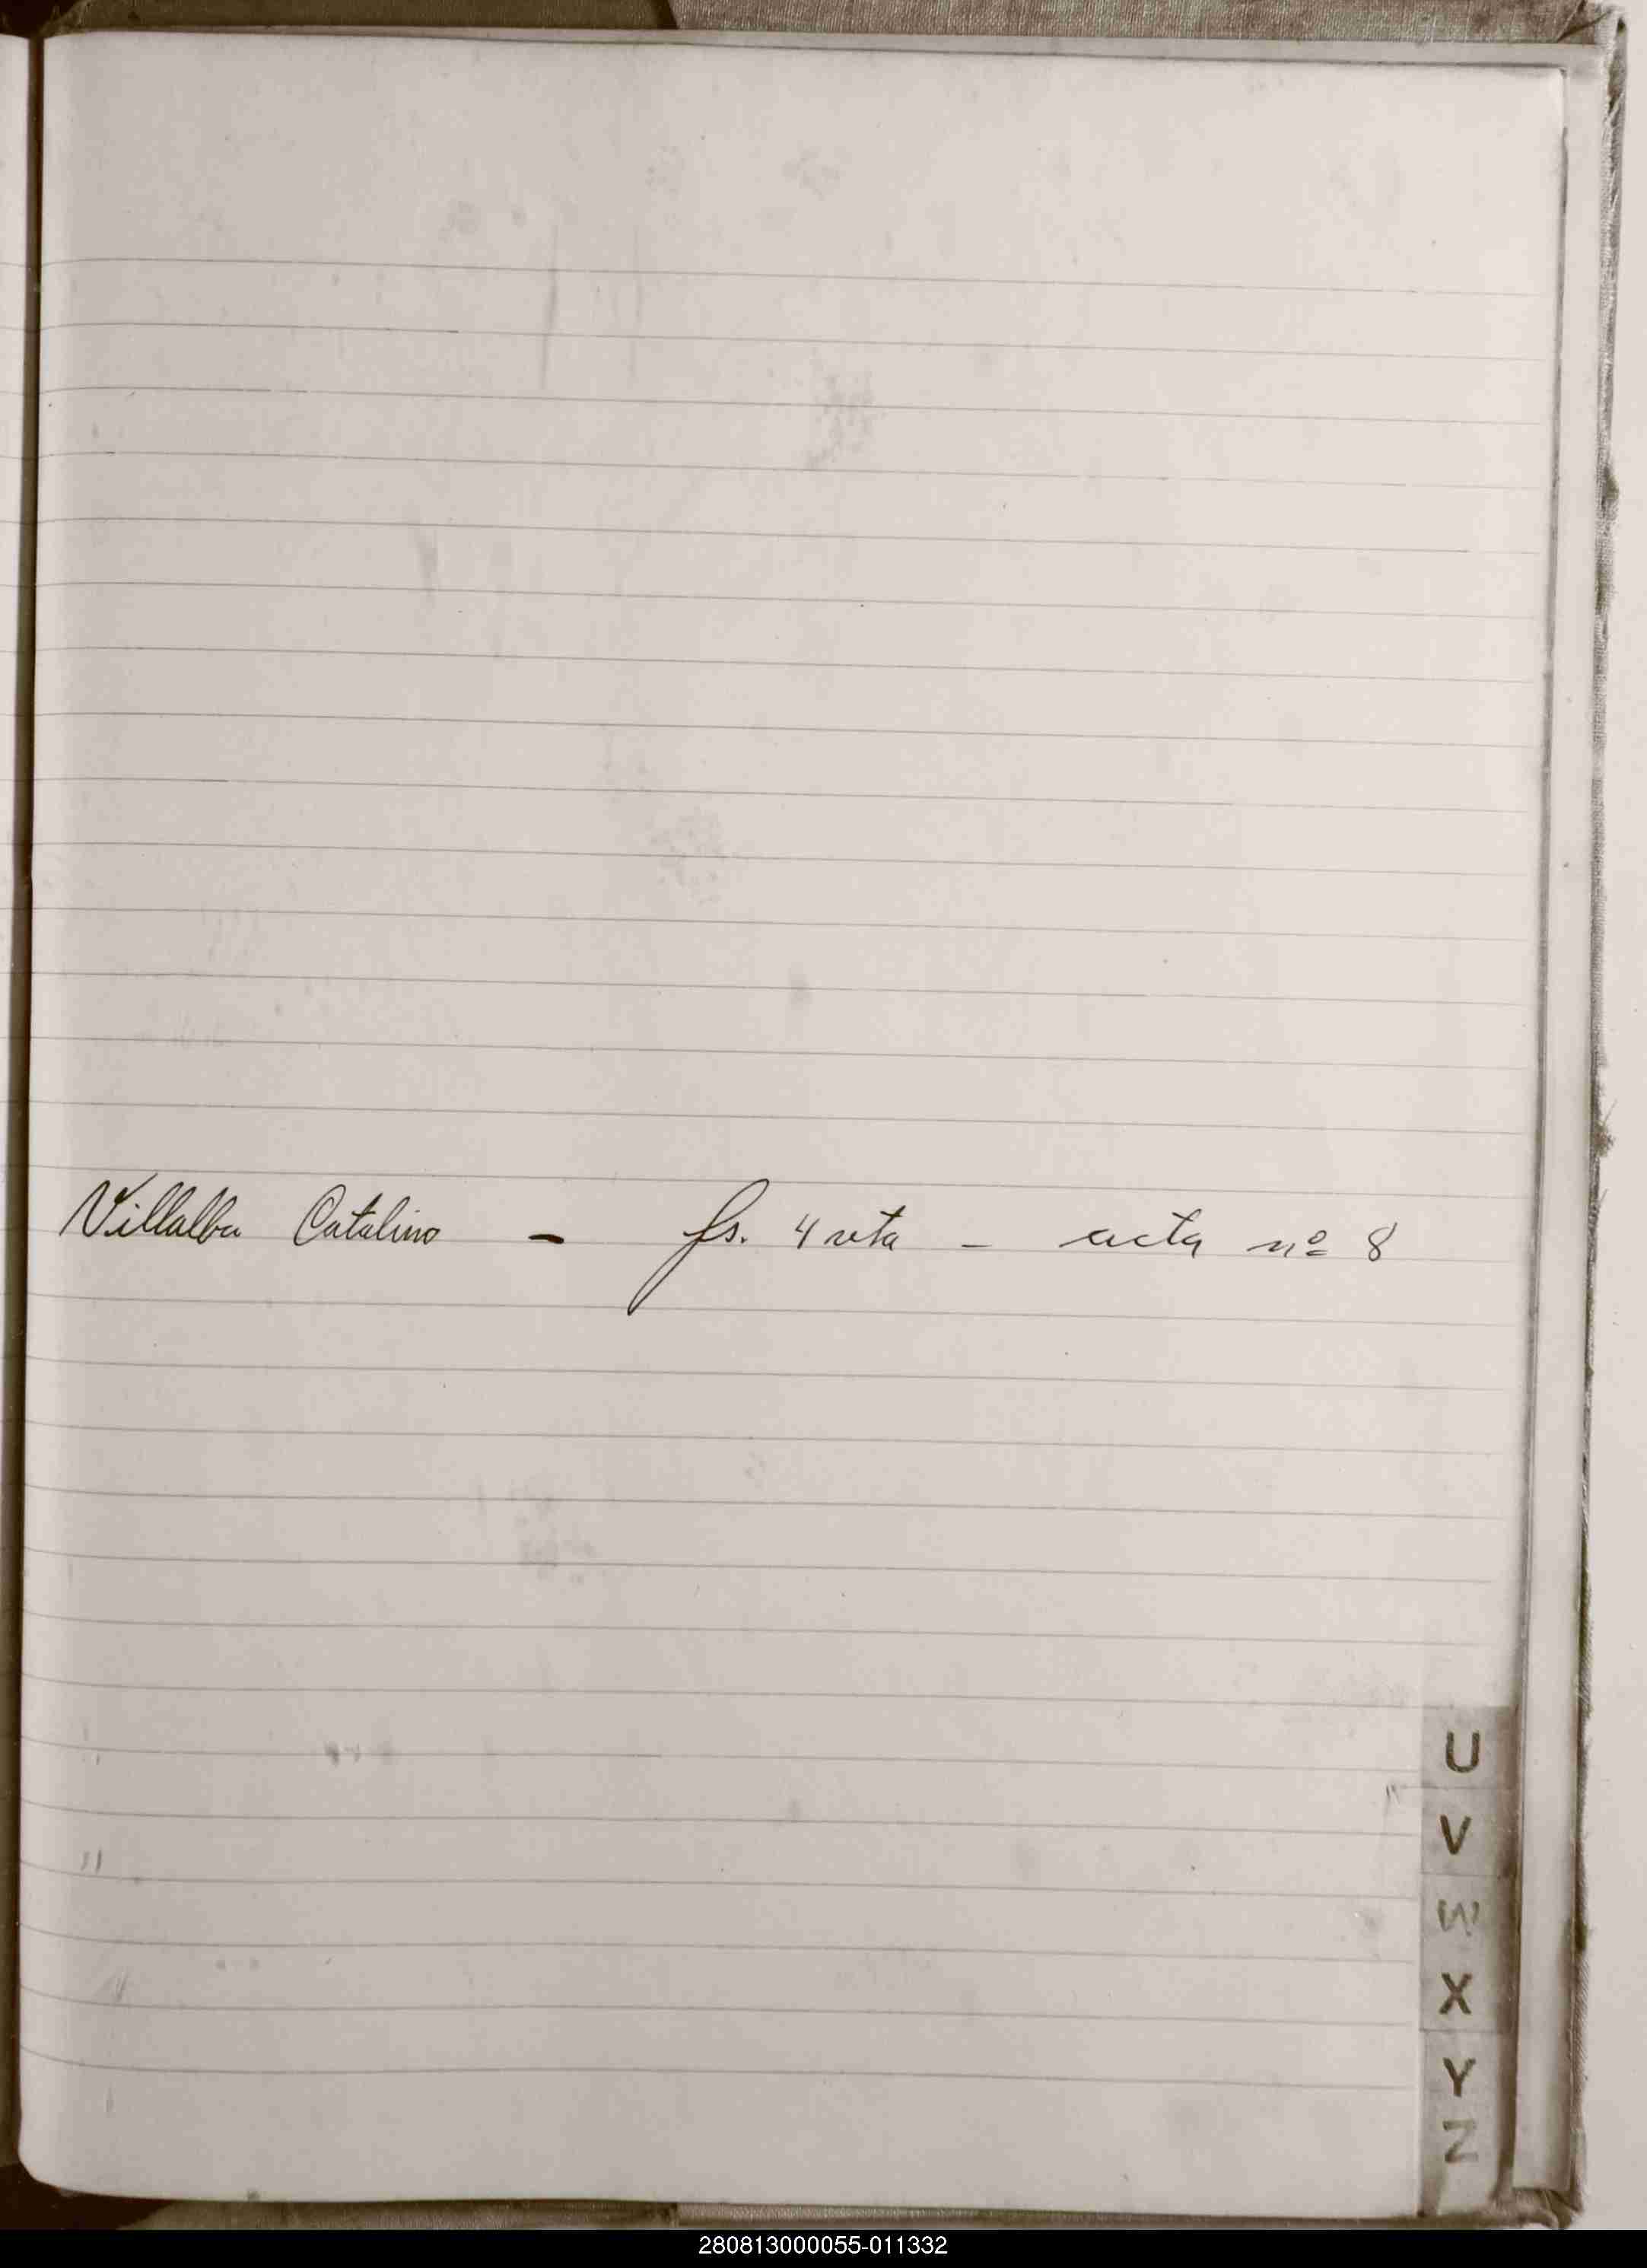 Villalba Catalino - fs. 4 vta - acta nº 8
U
V
W
X
Y
Z
280813000055-011332